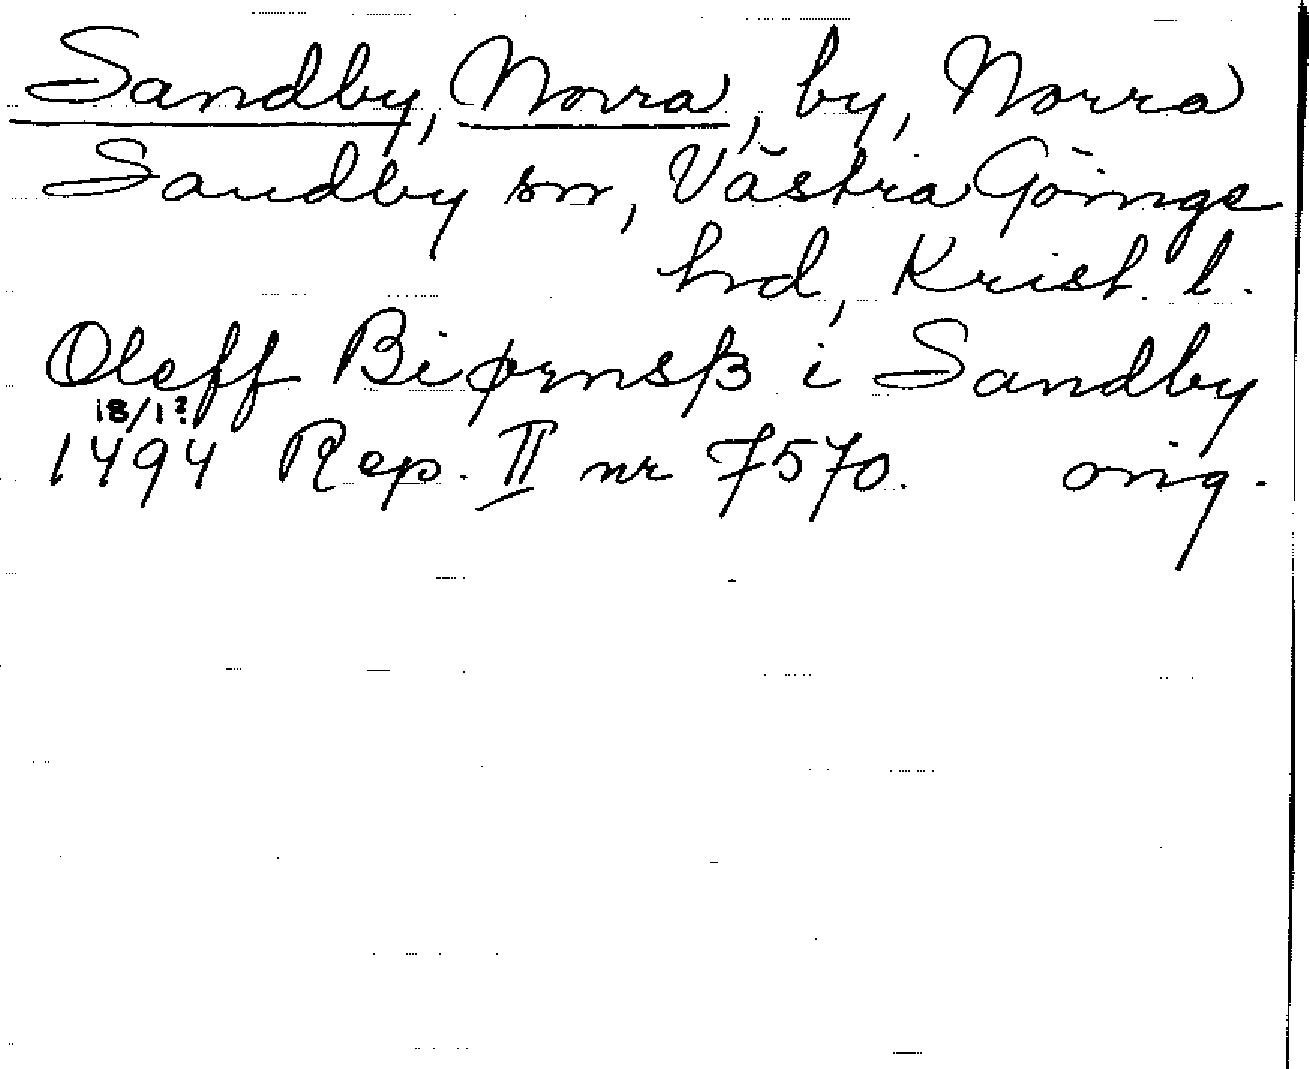 Sandby, Norra, by, Norra
Sandby sn, Västra Göinge
hd, Krist. l.
Oleff Biørnsß i Sandby
18/1?
1494 Rep. II nr 7570. orig.